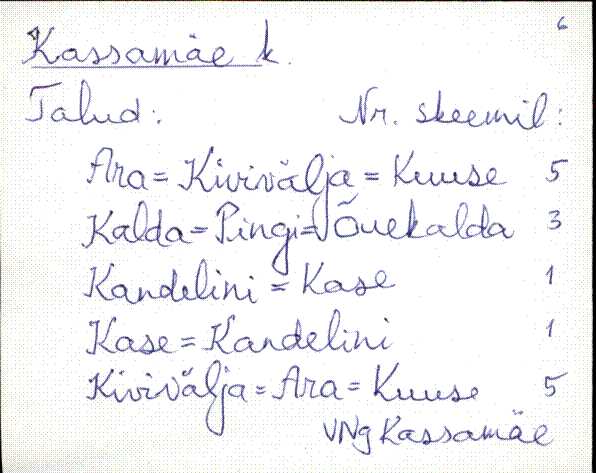 6
Kassamäe k.
Talud: Nr. skeemil:
Ara = Kivivälja = Kuuse 5
Kalda = Pingi = Õuekalda 3
Kandelini = Kase 1
Kase = Kandelini 1
Kivivälja = Ara = Kuuse 5
VNg Kassamäe